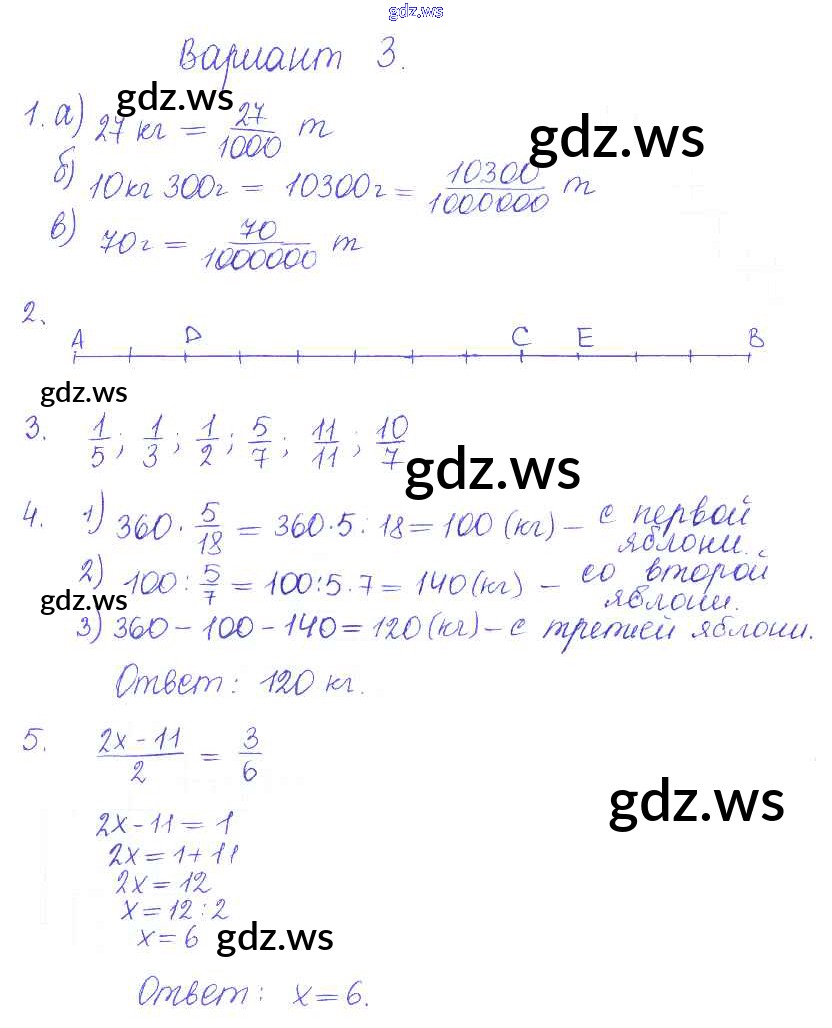 gdz.ws
Вариант 3.
gdz.ws
1. а) 27 кг = 27/1000 т
gdz.ws
б) 10кг 300г = 10300г = 10300/1000000 т
в) 70г = 70/1000000 т
2.
A D C E B
gdz.ws
3. 1/5; 1/3; 1/2; 5/7; 11/11; 10/7
gdz.ws
4. 1) 360 · 5/18 = 360·5:18 = 100 (кг) – с первой
яблони.
2) 100 : 5/7 = 100:5·7 = 140 (кг) – со второй
gdz.ws
яблони.
3) 360 – 100 – 140 = 120 (кг) – с третией яблони.
Ответ: 120 кг.
5. 2x – 11/2 = 3/6
gdz.ws
2x – 11 = 1
2x = 1 + 11
2x = 12
x = 12 : 2
x = 6
gdz.ws
Ответ: x = 6.